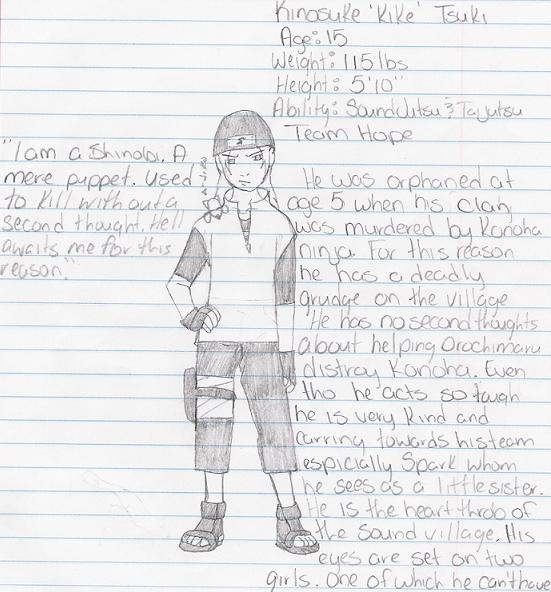 Kinosuke 'Kike' Tsuki
Age: 15
Weight: 115 lbs
Height: 5'10"
Ability: Sound Jutsu & Taijutsu
Team Hope
"I am a Shinobi. A
mere puppet. Used
to kill without a
second thought. Hell
awaits me for this
reason."
He was orphaned at
age 5 when his clan
was murdered by Konoha
ninja. For this reason
he has a deadly
grudge on the village
He has no second thoughts
about helping Orochimaru
distray Konoha. Even
tho he acts so tough
he is very kind and
carring towards his team
espicially Spark whom
he sees as a little sister.
He is the heart throb of
the sound village. His
eyes are set on two
girls. One of which he can't have